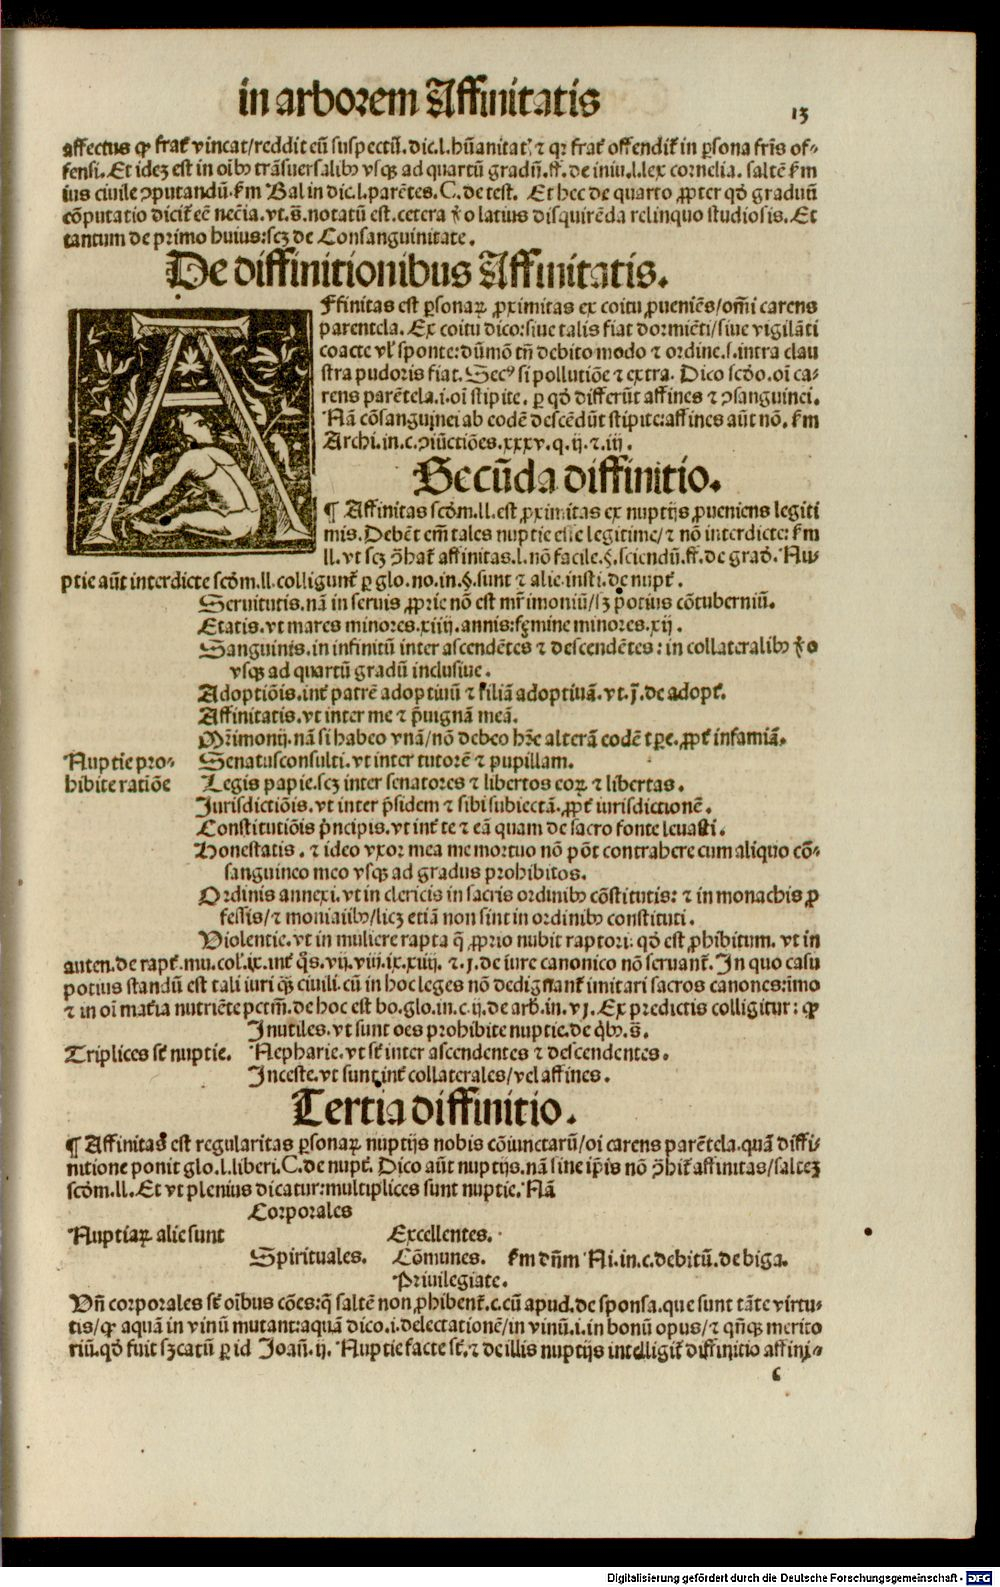 in arborem Affinitatis
13
affectus ꝙ frat̃ vincat/reddit eũ suspectũ. dic.l.hũanitatꝭ ⁊ qꝛ frat̃ offendit̃ in ꝑsona fr̃is of⸗
fensi. Et idez est in oĩbꝫ trãsuersalibꝫ vsqꝫ ad quartũ gradũ. ff. de iniu.l.lex cornelia. saltẽ ẜm
ius ciuile ↄputandũ. ẜm Bal in dic.l.parẽtes. C. de test. Et hec de quarto ꝓpter qđ graduũ
cõputatio dicit̃ eẽ necĩa. vt.s̃.notatũ est. cetera ꝟo latius disquirẽda relinquo studiosis. Et
tantum de primo huius: scꝫ de Consanguinitate.
De diffinitionibus Affinitatis.
Affinitas est ꝑsonaꝝ ꝓximitas ex coitu ꝓueniẽs/om̃i carens
parentela. Ex coitu dico: siue talis fiat dormiẽti/siue vigilãti
coacte vl̃ sponte: dũmõ tñ debito modo ⁊ ordine.s.intra clau
stra pudoris fiat. Secꝰ si pollutiõe ⁊ extra. Dico scđo.oĩ ca⸗
rens parẽtela.i.oĩ stipite. ꝑ qđ differũt affines ⁊ ↄsanguinei.
Nã cõsanguinei ab eodẽ descẽdũt stipite: affines aũt nõ. ẜm
Archi.in.c.ↄiũctiões.xxxv.q.ij.⁊.iij.
Secũda diffinitio.
¶ Affinitas scđm.ll.est ꝓximitas ex nuptijs ꝓueniens legiti
mis. Debẽt em̃ tales nuptie esse legitime/⁊ nõ interdicte: ẜm
ll. vt scꝫ ↄ̃hat̃ affinitas.l.nõ facile.§.sciendũ.ff.de građ. Nu⸗
ptie aũt interdicte scđm.ll.colligunt̃ ꝑ glo.no.in.§.sunt ⁊ alie.insti.de nupt̃.
Seruitutis. nã in seruis ꝓprie nõ est mr̃imoniũ/sꝫ potius cõtuberniũ.
Etatis. vt mares minores.xiiij.annis: femine minores.xij.
Sanguinis. in infinitũ inter ascendẽtes ⁊ descendẽtes: in collateralibꝫ ꝟo
vsqꝫ ad quartũ gradũ inclusiue.
Adoptiõis. int̃ patrẽ adoptiuũ ⁊ filiã adoptiuã. vt.j̃.de adopt̃.
Affinitatis. vt inter me ⁊ p̃uignã meã.
Mr̃imonij. nã si habeo vnã/nõ debeo hr̃e alterã eodẽ tp̃e. ꝓpt̃ infamiã.
Nuptie pro⸗ Senatusconsulti. vt inter tutorẽ ⁊ pupillam.
hibite ratiõe Legis papie. scꝫ inter senatores ⁊ libertos eoꝝ ⁊ libertas.
Jurisdictiõis. vt inter p̃sidem ⁊ sibi subiectã. ꝓpt̃ iurisdictionẽ.
Constitutiõis p̃ncipis. vt int̃ te ⁊ eã quam de sacro fonte leuasti.
Honestatis. ⁊ ideo vxor mea me mortuo nõ põt contrahere cum aliquo cõ⸗
sanguineo meo vsqꝫ ad gradus prohibitos.
Ordinis annexi. vt in clericis in sacris ordinibꝫ cõstitutis: ⁊ in monachis ꝓ
fessis/⁊ monialibꝫ/licꝫ etiã non sint in ordinibꝫ constituti.
Violentie. vt in muliere rapta q̃ ꝓprio nubit raptori: qđ est ꝓhibitum. vt in
auten.de rapt̃.mu.col.ix.int̃ q̃s.vij.viij.ix.xiiij. ⁊.j.de iure canonico nõ seruant̃. In quo casu
potius standũ est tali iuri qꝫ ciuili. cũ in hoc leges nõ dedignant̃ imitari sacros canones: imo
⁊ in oĩ mat̃ia nutriẽte pctm̃. de hoc est bo.glo.in.c.ij.de arb.in.vj. Ex predictis colligitur: ꝙ
Inutiles. vt sunt oẽs prohibite nuptie. de q̃bꝫ.s̃.
Triplices st̃ nuptie. Nepharie. vt st̃ inter ascendentes ⁊ descendentes.
Inceste. vt sunt int̃ collaterales/vel affines.
Tertia diffinitio.
¶ Affinitas est regularitas ꝑsonaꝝ nuptijs nobis cõiunctarũ/oĩ carens parẽtela. quã diffi⸗
nitione ponit glo.l.liberi.C.de nupt̃. Dico aũt nuptijs. nã sine ip̃is nõ ↄ̃hit̃ affinitas/saltez
scđm.ll. Et vt plenius dicatur: multiplices sunt nuptie. Nã
Corporales
Nuptiaꝝ alie sunt Excellentes.
Spirituales. Cõmunes. ẜm dñm Ni.in.c.debitũ.de biga.
Priuilegiate.
Vñ corporales st̃ oĩbus cões: q̃ saltẽ non ꝓhibent̃.c.cũ apud.de sponsa. que sunt tãte virtu⸗
tis/ꝙ aquã in vinũ mutant: aquã dico.i.delectationẽ/in vinũ.i.in bonũ opus/⁊ qñqꝫ merito
riũ. qđ fuit sꝫcatũ ꝑ id Joañ.ij. Nuptie facte st̃. ⁊ de illis nuptijs intelligit̃ diffinitio affini⸗
c
Digitalisierung gefördert durch die Deutsche Forschungsgemeinschaft - DFG